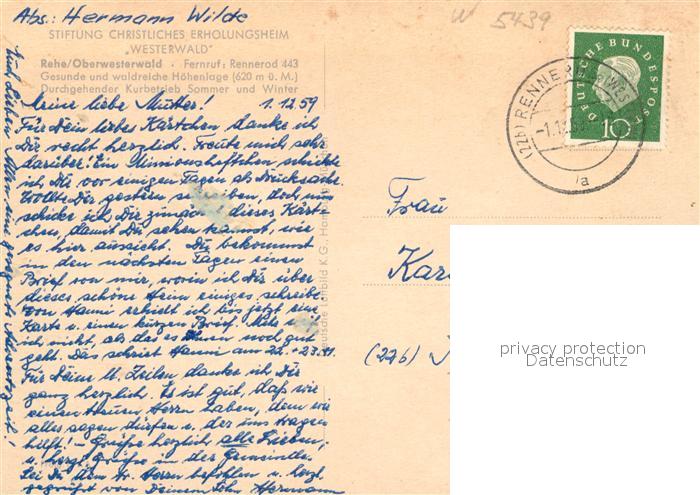 Abs.: Hermann Wilde
STIFTUNG CHRISTLICHES ERHOLUNGSHEIM
„WESTERWALD"
Rehe/Oberwesterwald · Fernruf: Rennerod 443
Gesunde und waldreiche Höhenlage (620 m ü. M.)
Durchgehender Kurbetrieb Sommer und Winter
Meine liebe Mutter! 1.12.59
Für Dein liebes Kärtchen danke ich
Dir recht herzlich. Freute mich sehr
darüber! Ein Missionsheftchen schickte
ich Dir vor einigen Tagen als Drucksache.
Wollte Dir gestern schreiben, doch nun
schicke ich Dir zunächst dieses Kärt-
chen, damit Du sehen kannst, wie
es hier aussieht. Du bekommst
in den nächsten Tagen einen
Brief von mir, worin ich Dir über
dieses schöne Heim einiges schreibe.
Von Hanni erhielt ich bis jetzt eine
Karte u. einen kurzen Brief.
ich nicht, als das es Ihnen noch gut
geht. Das schrieb Hanni am 22. + 23.11.
Für Deine lb. Zeilen danke ich Dir
ganz herzlich. Es ist gut, daß wir
einen Herrn haben, dem wir
alles sagen dürfen u. der uns tragen
hilft! – Grüße herzlich alle Lieben,
u. herzl. Grüße in der Gemeinde.
Sei Du dem tr. Herrn befohlen u. herzl.
gegrüßt von Deinem Sohn Hermann
Euch Lieben Allen eine gesegnete Adventszeit!
W 5439
DEUTSCHE BUNDESPOST
10
(22b) RENNEROD (WESTERW)
-1.12.59
a
Frau
Kar
(22b)
privacy protection
Datenschutz